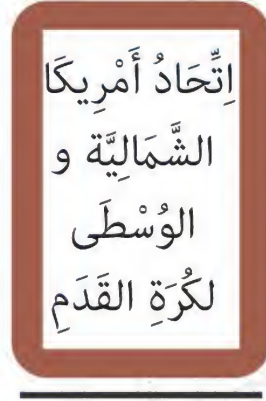 اِتِّحَادُ أَمْرِيكَا
الشَّمَالِيَّة و
الوُسْطَى
لكُرَةِ القَدَمِ